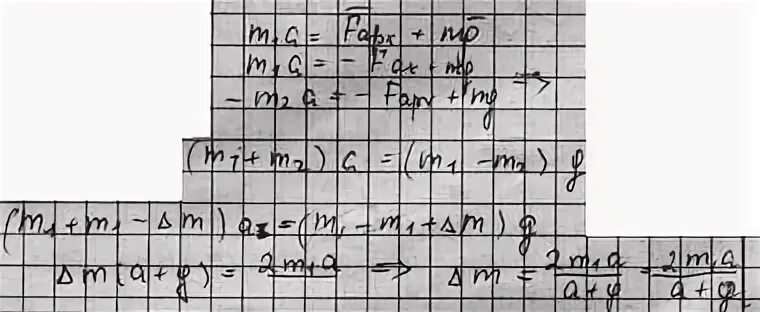 m₁a = F̅арх + mg̅
m₁a = - Fах + mg
- m₂a = - Fарх + mg ⇒
(m₁ + m₂) a = (m₁ - m₂) g
(m₁ + m₁ - Δm) a = (m₁ - m₁ + Δm) g
Δm(a + g) = 2m₁a ⇒ Δm = 2m₁a/(a + g) = 2m₁a/(a + g)